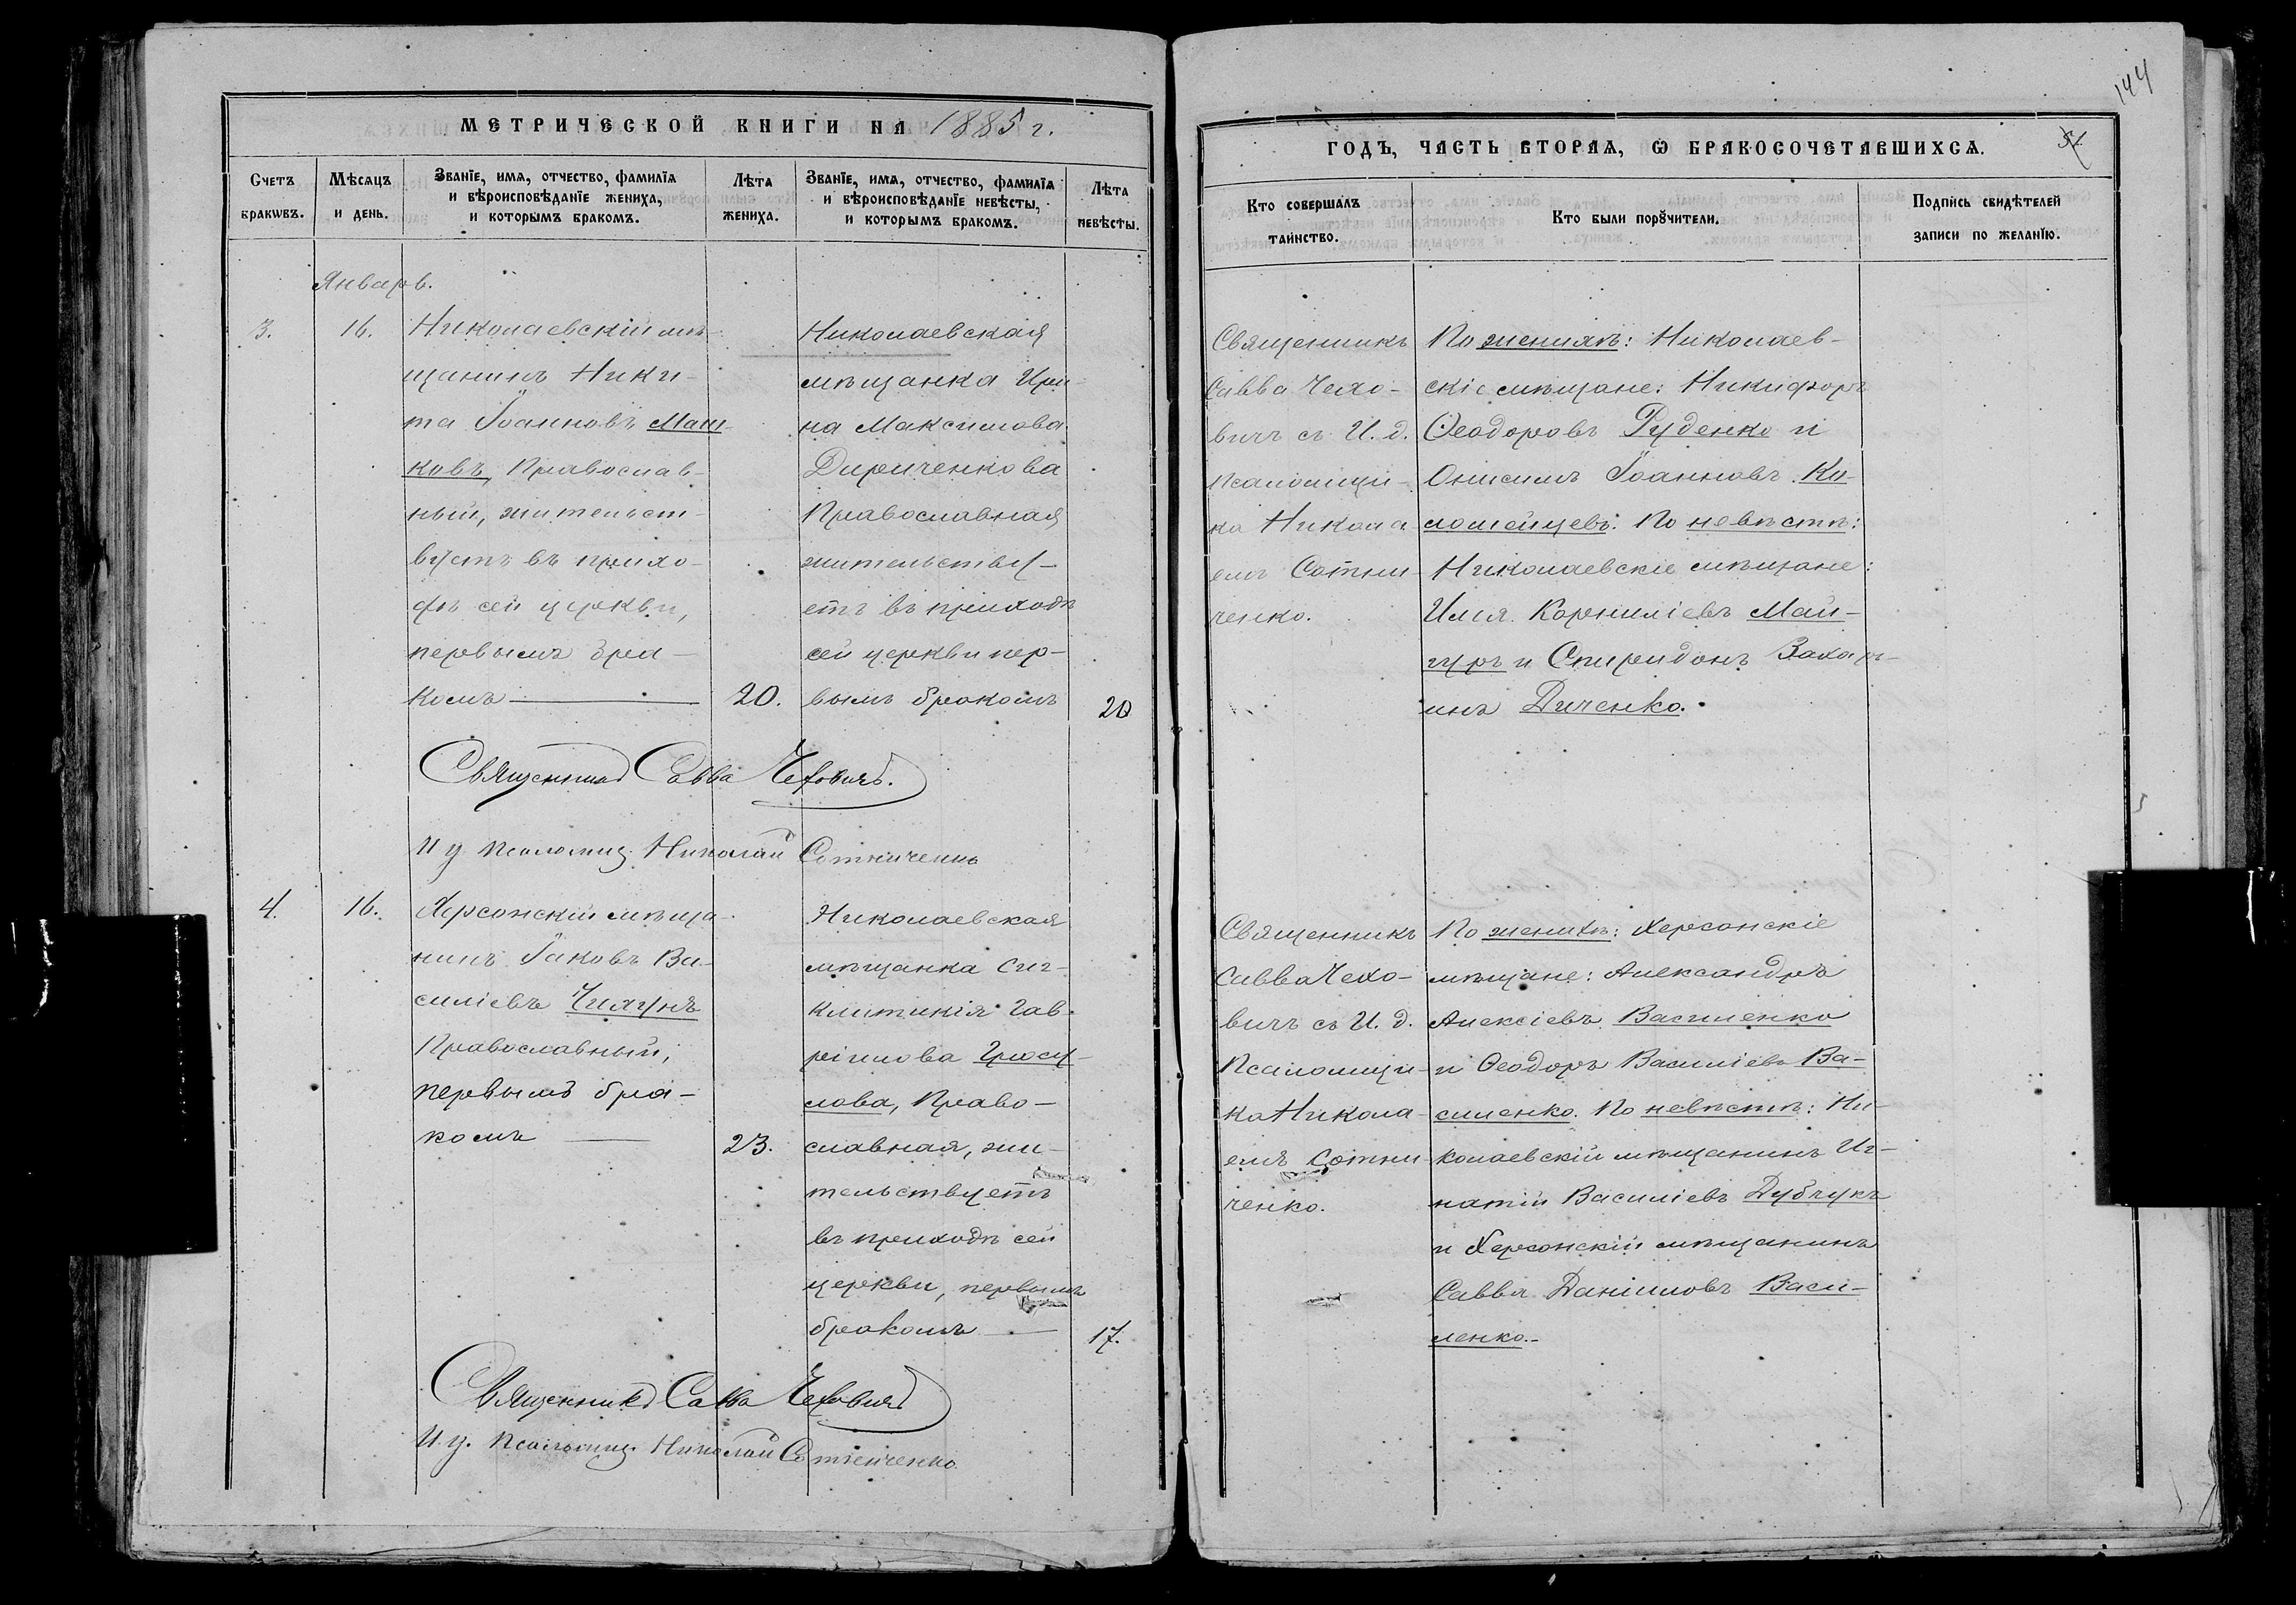 МЕТРИЧЕСКОЙ КНИГИ НА 1885 г.
Счетъ браковъ.
Мѣсяцъ и день.
Званїе, имя, отчество, фамилїя
и вѣроисповѣданїе жениха,
и которымъ бракомъ.
Лѣта жениха.
Званїе, имя, отчество, фамилїя
и вѣроисповѣданїе невѣсты,
и которымъ бракомъ.
Лѣта невѣсты.
Январь.
3.
16.
Николаевскій мѣ-
щанинъ Ники-
та Іоанновъ Маш-
ковъ, Православ-
ный, жительст-
вуетъ въ прихо-
дѣ сей церкви,
первымъ бра-
комъ
20.
Николаевская
мѣщанка Ири-
на Максимова
Дириченкова
Православная
жительству-
етъ въ приходѣ
сей церкви пер-
вымъ бракомъ
20
Священникъ Савва Чеховичъ.
И у Псаломщ. Николай Сотниченко
4.
16.
Херсонскій мѣща-
нинъ Іаковъ Ва-
силіевъ Чиягунъ
Православный,
первымъ бра-
комъ
23.
Николаевская
мѣщанка Синг-
клитикія Гав-
ріилова
слова, Право-
славная, жи-
тельствуетъ
въ приходѣ сей
церкви, первымъ
бракомъ
17.
Священникъ Савва Чеховичъ
И у. Псаломщ. Николай Сотниченко
144
ГОДЪ, ЧАСТЬ ВТОРАЯ, Ѡ БРАКОСОЧЕТАВШИХСЯ.
Кто совершалъ таинство.
Кто были порꙋчители.
Подпись свидѣтелей
записи по желанїю.
Священникъ
Савва Чехо-
вичъ съ И. д.
псаломщи-
ка Никола
емъ Сотни-
ченко.
По женихѣ: Николаев-
скіе мѣщане: Никифоръ
Ѳеодоровъ Руденко и
Онисимъ Іоанновъ Ко-
ломейцевъ. По невѣстѣ:
Николаевскіе мѣщане:
Илія Корниліевъ Май-
гуръ и Спиридонъ Захар-
инъ Диченко.
Священникъ
Савва Чехо-
вичъ съ И. д.
Псаломщи-
ка Никола-
емъ Сотни-
ченко.
По женихѣ: Херсонскіе
мѣщане: Александръ
Алексіевъ Василенко
и Ѳеодоръ Василіевъ Ва-
силенко. По невѣстѣ: Ни-
колаевскій мѣщанинъ Иг-
натій Василіевъ Дубчукъ
и Херсонскій мѣщанинъ
Савва Даніиловъ Васи-
ленко.-